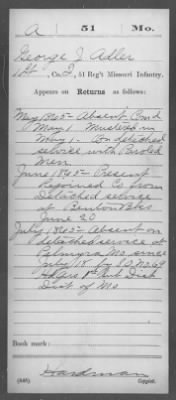 A | 51 | Mo.
George J Adler
Lt., Co. I, 51 Reg't Missouri Infantry.
Appears on Returns as follows:
May 1865 Absent Com'd
May 1 Mustered in
May 1. On detached
service with Paroled
Men
June 1865 Present
Rejoined Co from
Detached service
at Benton Bks
June 20
July 1865 Absent on
detached service at
Palmyra Mo since
July 18 by S.O. No. 69
Hdqrs 1st Sub Dist
Dist of Mo
Book mark:
Hardman
(646) Copyist.